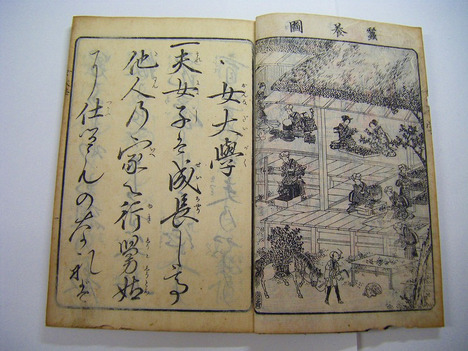 蠶養圖
女大學
一夫女子は成長して
他人の家へ行舅姑
に仕るものなれば